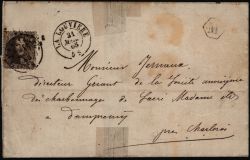 LA LOUVIÈRE
21
5 S
Monsieur Ternaux
directeur Gérant de la Société anonyme
des charbonnages de Sacré Madame etc
à Dampremy
près Charleroi